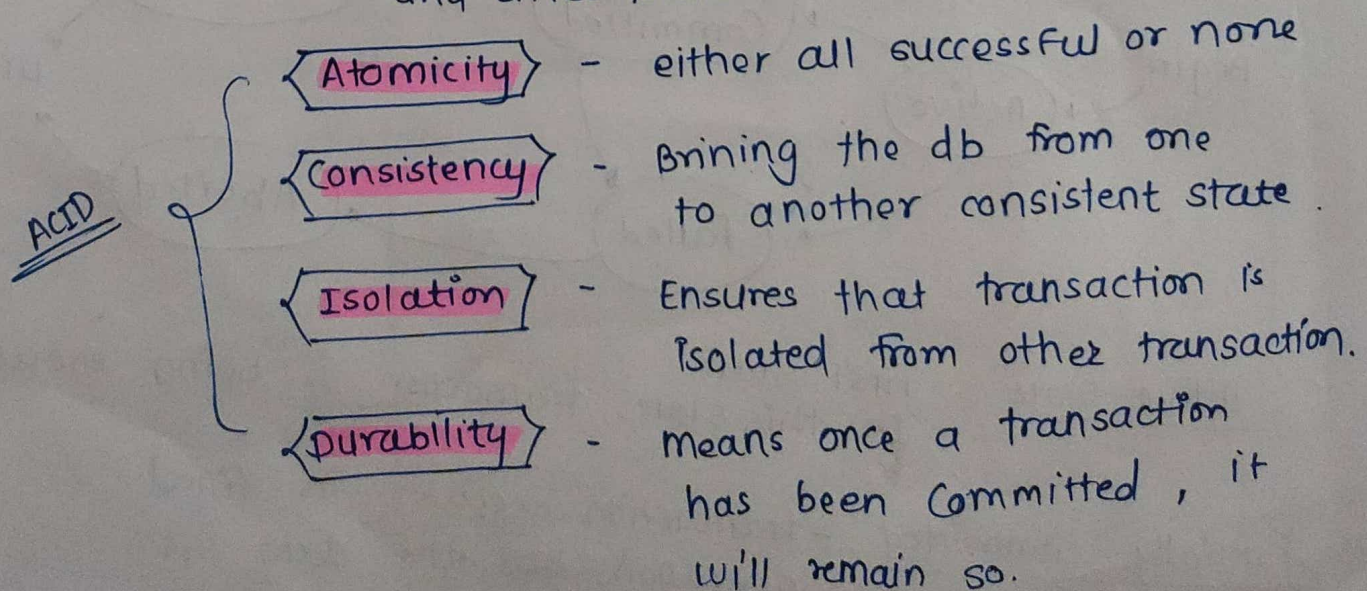 Atomicity - either all successful or none
Consistency - Brining the db from one
to another consistent state.
ACID
Isolation - Ensures that transaction is
isolated from other transaction.
Durability - means once a transaction
has been committed, it
will remain so.